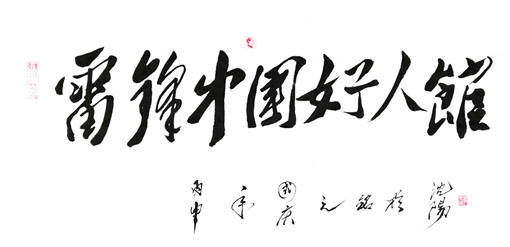 雷鋒中國好人館
丙申年國庆元銘於沈陽